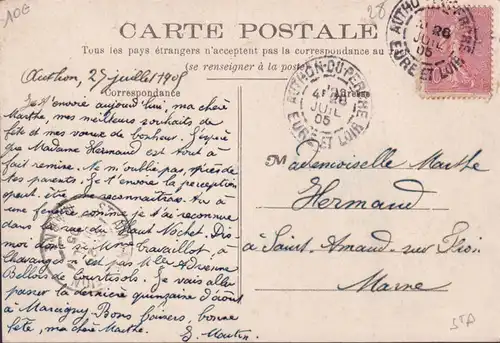 10E
28
CARTE POSTALE
Tous les pays étrangers n'acceptent pas la correspondance au
(se renseigner à la poste
Correspondance
Adresse
AUTHON-DU-PERCHE
26
JUIL
05
EURE ET LOIR
AUTHON-DU-PERCHE
26
JUIL
05
EURE ET LOIR
Authon, 27 juillet 1905
Je t'envoie aujourd'hui, ma chère
Marthe mes meilleurs souhaits de
fête et mes vœux de bonheur. J'espère
que Madame Hermand est tout à
fait remise. Ne m'oublie pas auprès de
tes parents. Je t'envoie la perception
peut-être me reconnaîtras-tu à
une fenêtre comme je t'ai reconnue
dans la rue du Haut Nochet. Dis
moi donc si Mme Travaillot, à
Chavanges n'est pas Mlle Adrienne
Bellois de Courtisols. Je vais aller
passer la dernière quinzaine d'août
à Marcigny. Bons baisers, bonne
fête, ma chère Marthe.
E. Martin
Mademoiselle Marthe
Hermand
à Saint-Amand-sur-Fion
Marne
STA